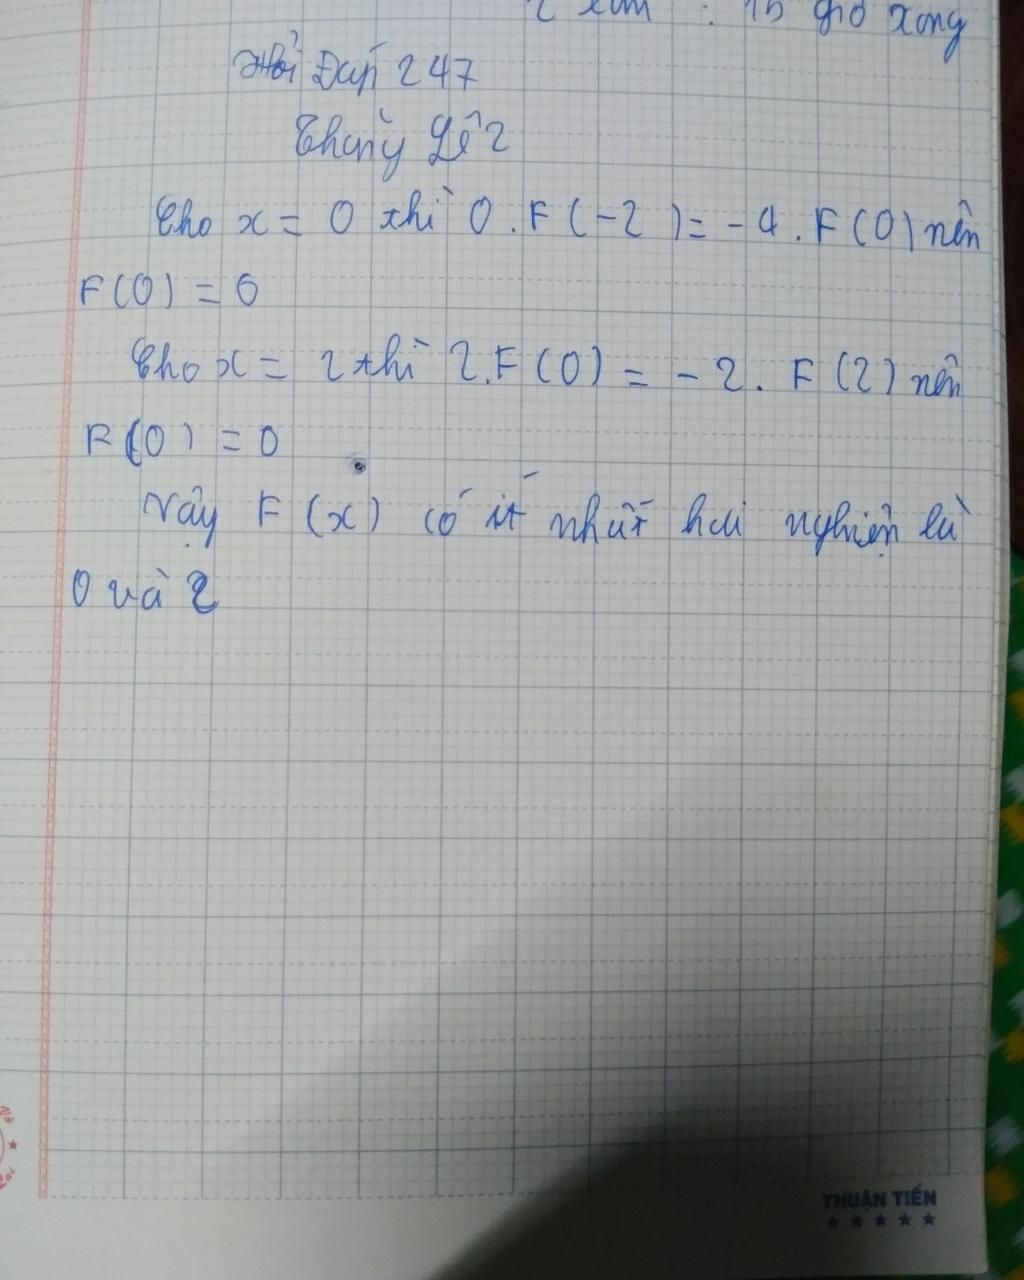 2 xom : 15 giờ xong
Hỏi Đáp 247
Cho x = 0 thì 0 . F (-2) = -4 . F (0) nên
F (0) = 0
Cho x = 2 thì 2. F (0) = - 2 . F (2) nên
F (0) = 0
Vậy F (x) có ít nhất hai nghiệm là
0 và 2
THUẬN TIẾN